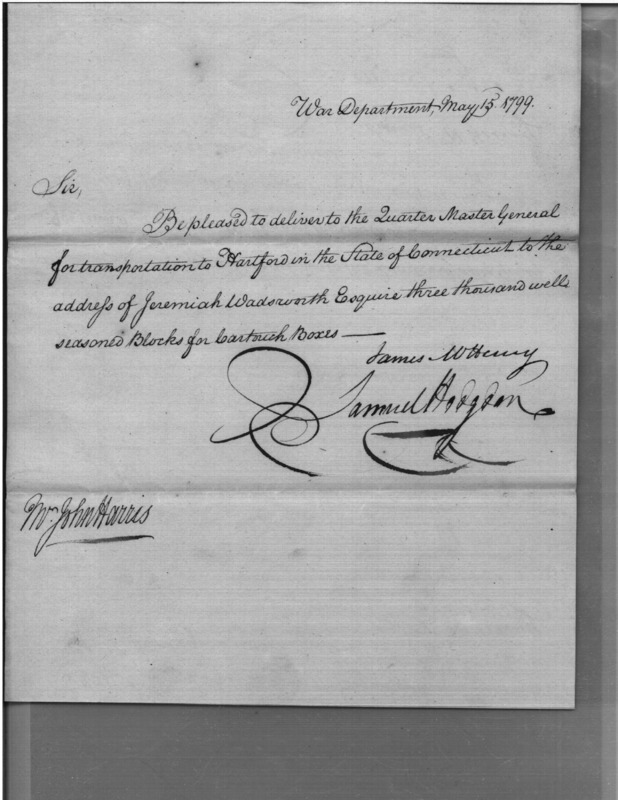 War Department, May 15 1799.
Sir,
Be pleased to deliver to the Quarter Master General
for transportation to Hartford in the State of Connecticut to the
address of Jeremiah Wadsworth Esquire three thousand well
seasoned Blocks for Cartouch Boxes —
James McHenry
Samuel Hodgdon
Mr. John Harris